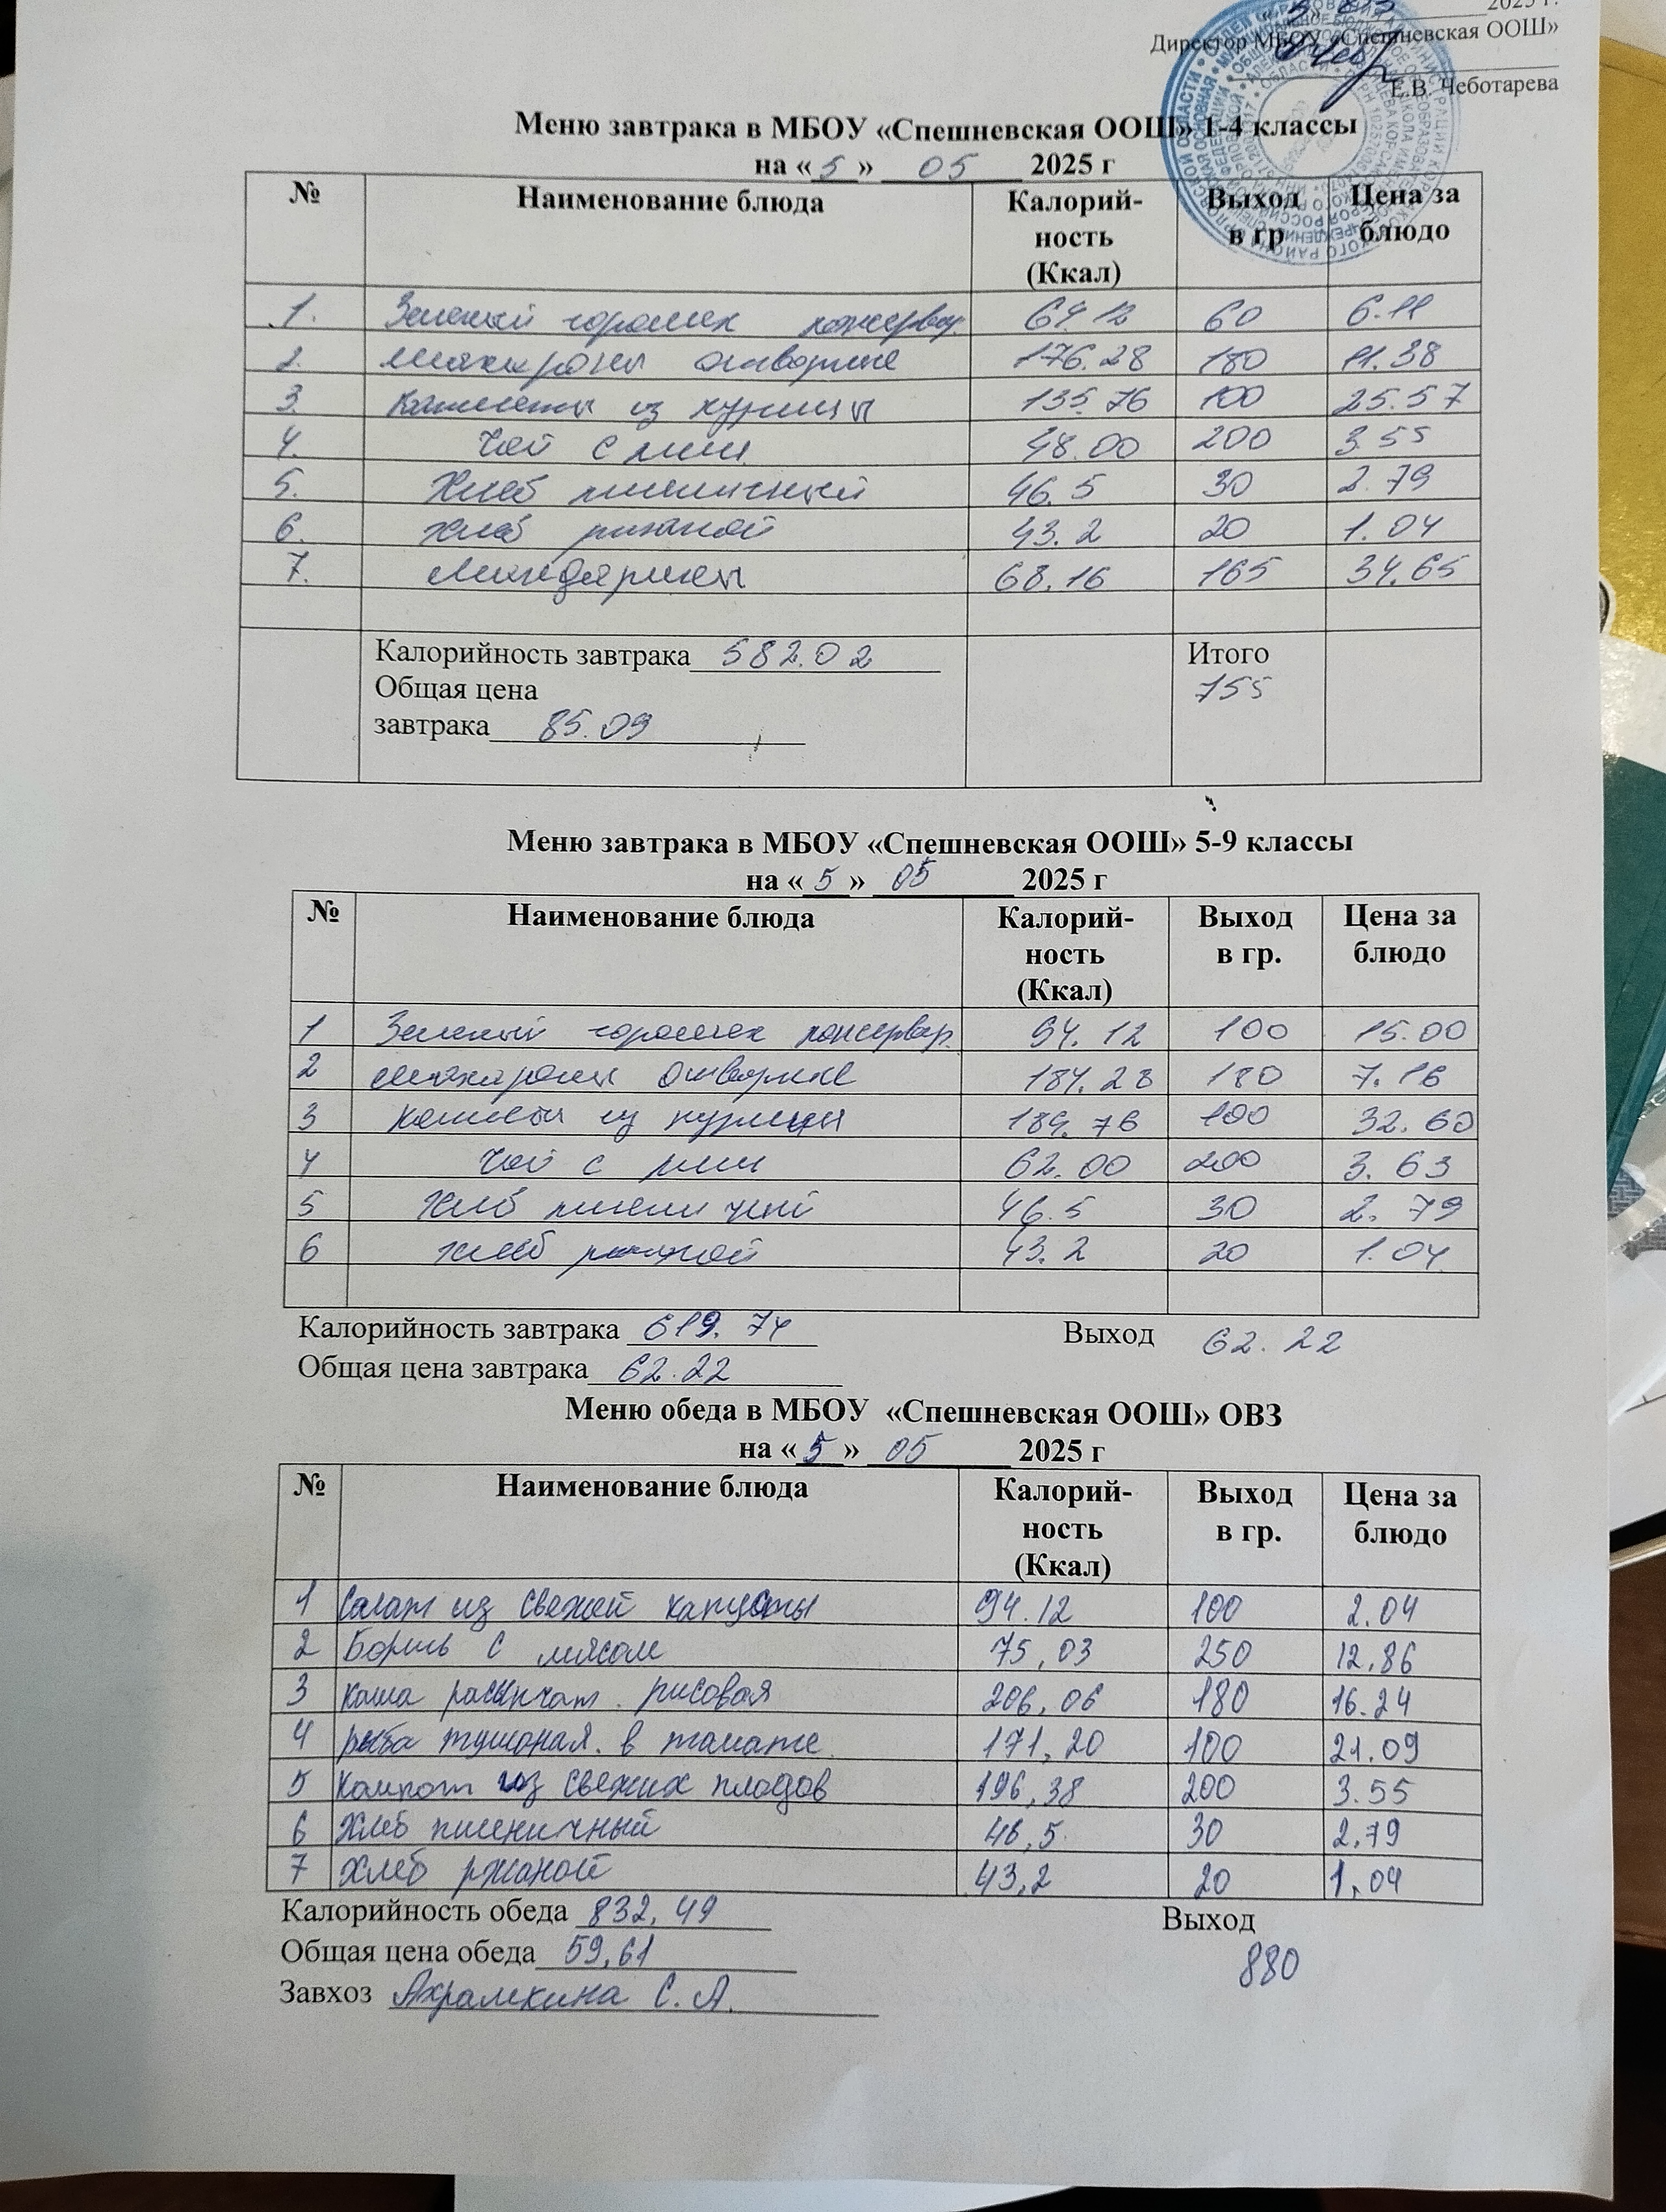 2025 г.
Директор МБОУ «Спешневская ООШ»
Е.В. Чеботарева
Меню завтрака в МБОУ «Спешневская ООШ» 1-4 классы
на «5» 05 2025 г
№ Наименование блюда Калорий-ность (Ккал) Выход в гр Цена за блюдо
1. Зеленый горошек консервир. 64.12 60 6.11
2. макароны отварные 176.28 180 11.38
3. Котлеты из курицы 135.76 100 25.57
4. Чай с 48.00 200 3.55
5. Хлеб пшеничный 46.5 30 2.79
6. хлеб ржаной 43.2 20 1.04
7. Мандарины 68.16 165 34.65
Калорийность завтрака 582.02 Итого
Общая цена 755
завтрака 85.09
Меню завтрака в МБОУ «Спешневская ООШ» 5-9 классы
на «5» 05 2025 г
№ Наименование блюда Калорий-ность (Ккал) Выход в гр. Цена за блюдо
1 Зеленый горошек консервир. 94.12 100 15.00
2 макароны отварные 184.28 180 7.16
3 Котлеты из курицы 189.76 100 32.60
4 Чай с 62.00 200 3.63
5 Хлеб пшеничный 46.5 30 2.79
6 хлеб ржаной 43.2 20 1.04
Калорийность завтрака 619.74 Выход 62.22
Общая цена завтрака 62.22
Меню обеда в МБОУ «Спешневская ООШ» ОВЗ
на «5» 05 2025 г
№ Наименование блюда Калорий-ность (Ккал) Выход в гр. Цена за блюдо
1 Салат из свежей капусты 94.12 100 2.04
2 Борщь с мясом 75,03 250 12,86
3 каша рассыпчат. рисовая 206,06 180 16.24
4 рыба тушоная. в томате 171,20 100 21.09
5 Компот из свежих плодов 196,38 200 3.55
6 Хлеб пшеничный 46,5 30 2,79
7 Хлеб ржаной 43,2 20 1,04
Калорийность обеда 832,49 Выход
Общая цена обеда 59,61 880
Завхоз Ахрамкина С.А.